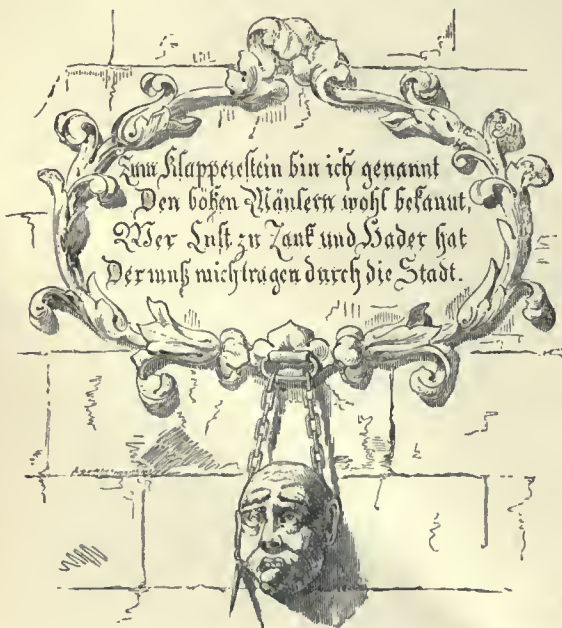 Zum Klapperstein bin ich genannt
Den boßen Mäulern wohl bekannt,
Wer Lust zu Zank und Hader hat
Der muß mich tragen durch die Stadt.